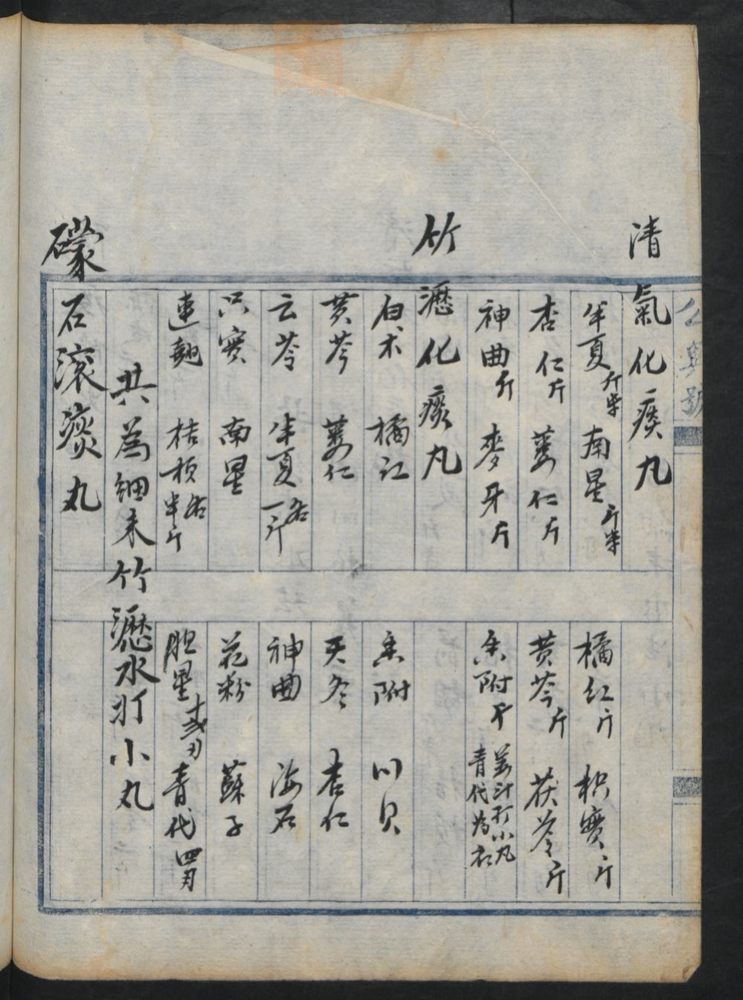 清氣化痰丸
半夏斤半 南星斤半 橘紅斤 枳實斤
杏仁斤 蔞仁斤 黄芩斤 茯苓斤
神曲斤 麥牙斤 香附斤 姜汁打小丸青代为衣
竹瀝化痰丸
白术 橘红 香附 川贝
黄芩 蔞仁 天冬 杏仁
云苓 半夏各一斤 神曲 海石
只實 南星 花粉 蘇子
連翹 桔梗各半斤 胆星 青代四刃
共為細末竹瀝水打小丸
礞石滚痰丸